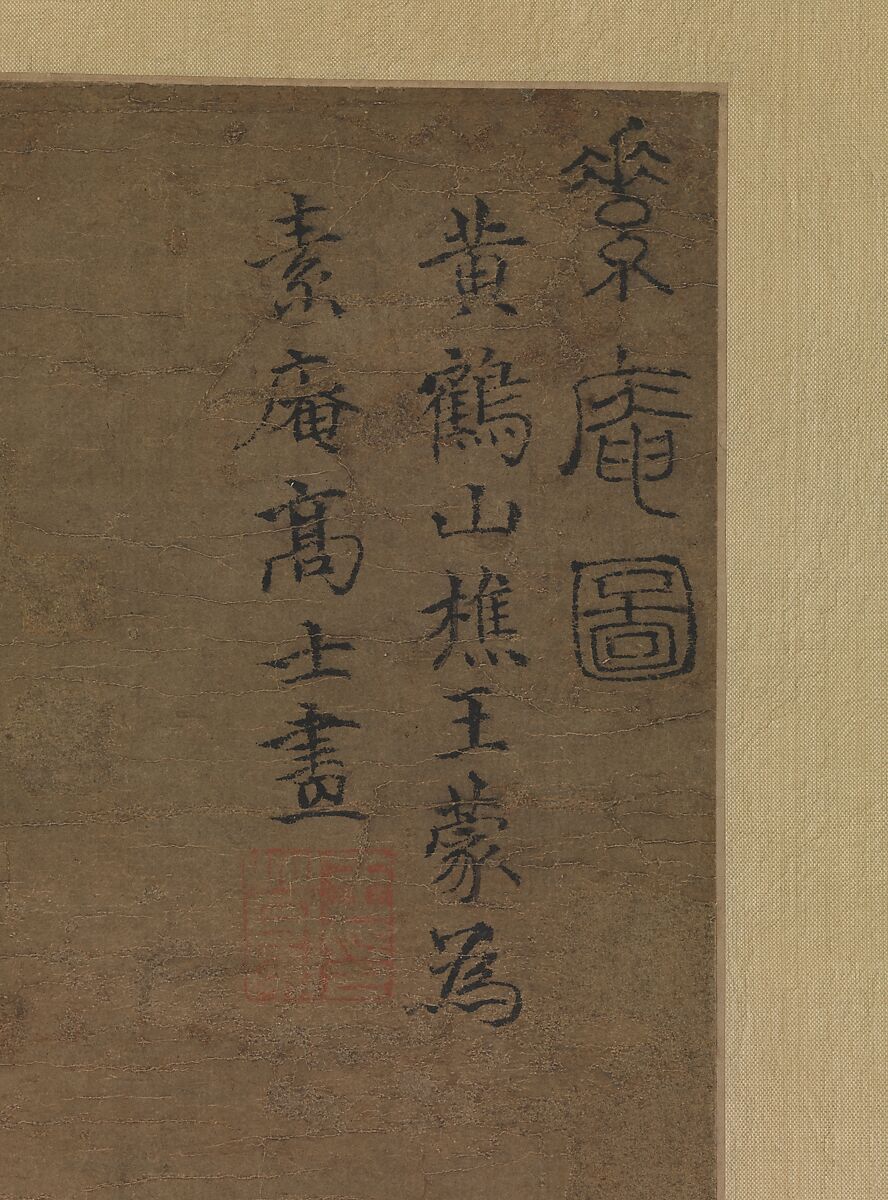 素庵圖
黄鶴山樵王蒙為
素庵髙士畫